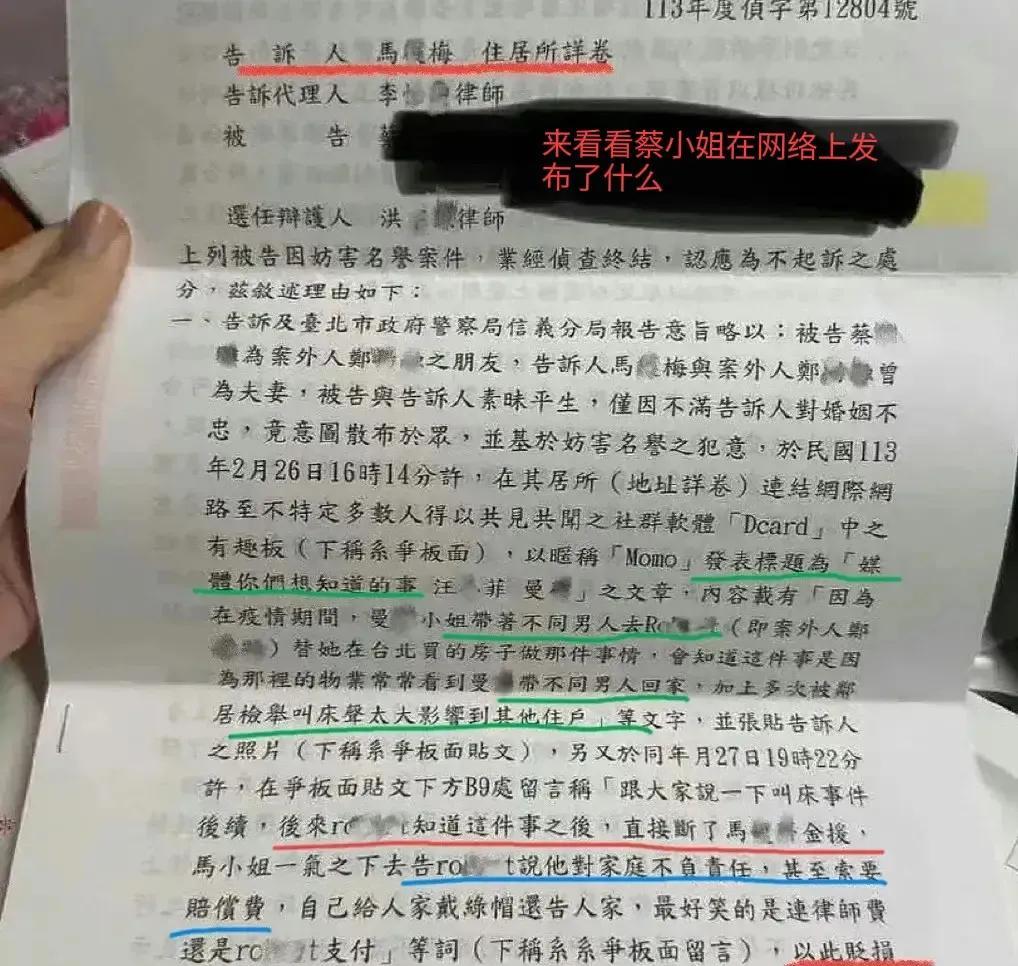 113年度偵字第12804號
告 訴 人 馬 梅 住居所詳卷
告訴代理人 李 律師
被 告
来看看蔡小姐在网络上发
布了什么
選任辯護人 洪 律師
上列被告因妨害名譽案件，業經偵查終結，認應為不起訴之處
分，茲敘述理由如下：
一、告訴及臺北市政府警察局信義分局報告意旨略以：被告蔡
為案外人鄭 之朋友，告訴人馬 梅與案外人鄭 曾
為夫妻，被告與告訴人素昧平生，僅因不滿告訴人對婚姻不
忠，竟意圖散布於眾，並基於妨害名譽之犯意，於民國113
年2月26日16時14分許，在其居所（地址詳卷）連結網際網
路至不特定多數人得以共見共聞之社群軟體「Dcard」中之
有趣板（下稱系爭板面），以暱稱「Momo」發表標題為「媒
體你們想知道的事 汪 菲 曼 」之文章，內容載有「因為
在疫情期間，曼 小姐帶著不同男人去Ro （即案外人鄭
）替她在台北買的房子做那件事情，會知道這件事是因
為那裡的物業常常看到曼 帶不同男人回家，加上多次被鄰
居檢舉叫床聲太大影響到其他住戶」等文字，並張貼告訴人
之照片（下稱系爭板面貼文），另又於同年月27日19時22分
許，在爭板面貼文下方B9處留言稱「跟大家說一下叫床事件
後續，後來ro t知道這件事之後，直接斷了馬 金援，
馬小姐一氣之下去告ro t說他對家庭不負責任，甚至索要
賠償費，自己給人家戴綠帽還告人家，最好笑的是連律師費
還是ro t支付」等詞（下稱系系爭板面留言），以此貶損